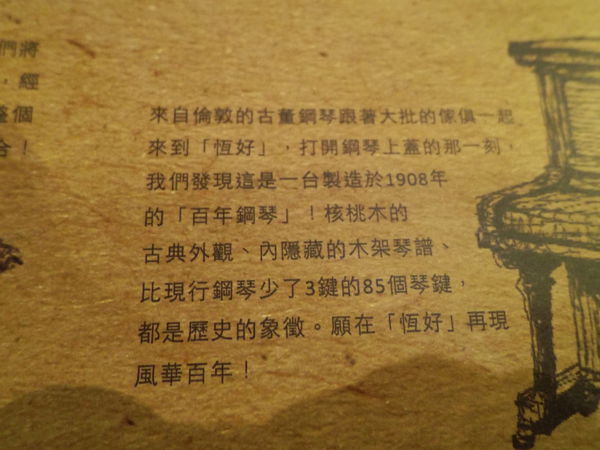 們將
，經
整個
合！
來自倫敦的古董鋼琴跟著大批的傢俱一起
來到「恆好」，打開鋼琴上蓋的那一刻，
我們發現這是一台製造於1908年
的「百年鋼琴」！核桃木的
古典外觀、內隱藏的木架琴譜、
比現行鋼琴少了3鍵的85個琴鍵，
都是歷史的象徵。願在「恆好」再現
風華百年！